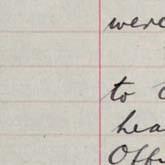 were
to
hea
Off